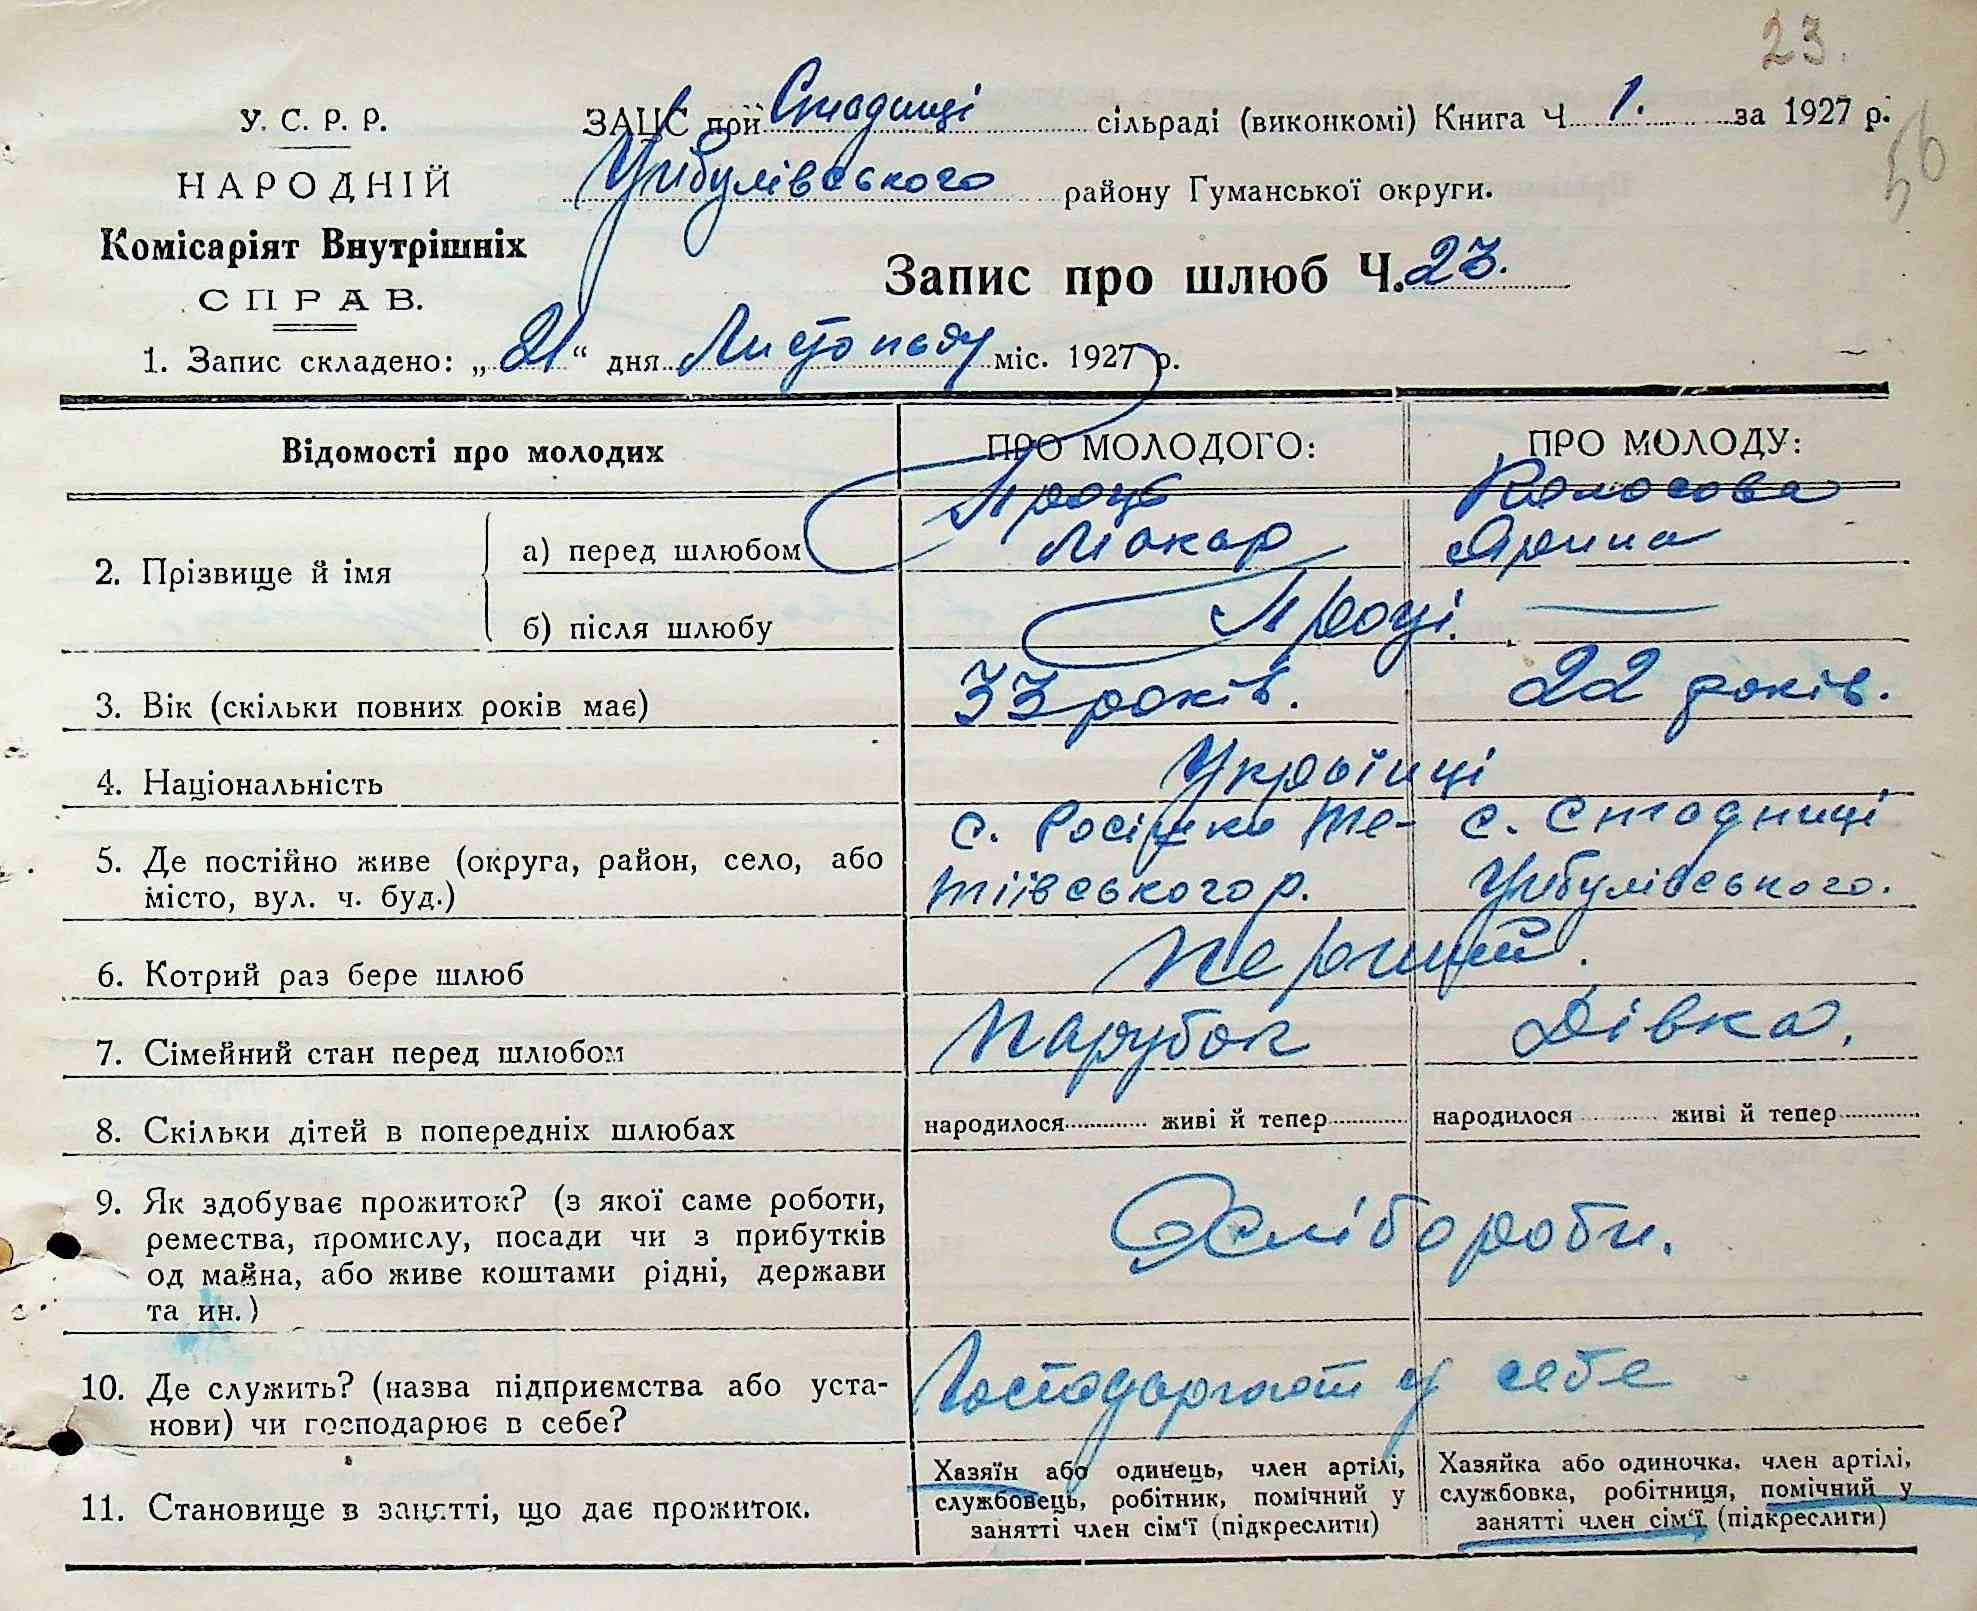 23.
56
У. С. Р. Р.
НАРОДНІЙ
Комісаріят Внутрішніх
СПРАВ.
ЗАЦС при Стадниці сільраді (виконкомі) Книга Ч 1. за 1927 р.
Цибулівського району Гуманської округи.
Запис про шлюб Ч. 23.
1. Запис складено: „21“ дня Листопаду міс. 1927 р.
Відомості про молодих
ПРО МОЛОДОГО:
ПРО МОЛОДУ:
2. Прізвище й імя
а) перед шлюбом
Проць
Макар
Колосова
Ярина
б) після шлюбу
Проці.
3. Вік (скільки повних років має)
33 років.
22 років.
4. Національність
Українці
5. Де постійно живе (округа, район, село, або
місто, вул. ч. буд.)
с. Росішка Те-
тіївського р.
с. Стадниці
Цибулівського.
6. Котрий раз бере шлюб
Перший.
7. Сімейний стан перед шлюбом
Парубок
Дівка.
8. Скільки дітей в попередніх шлюбах
народилося живі й тепер
народилося живі й тепер
9. Як здобуває прожиток? (з якої саме роботи,
ремества, промислу, посади чи з прибутків
од майна, або живе коштами рідні, держави
та ин.)
Хлібороби.
10. Де служить? (назва підприємства або уста-
нови) чи господарює в себе?
Господарюют у себе
11. Становище в занятті, що дає прожиток.
Хазяїн або одинець, член артілі,
службовець, робітник, помічний у
занятті член сім‘ї (підкреслити)
Хазяйка або одиночка, член артілі,
службовка, робітниця, помічний у
занятті член сім‘ї (підкреслити)